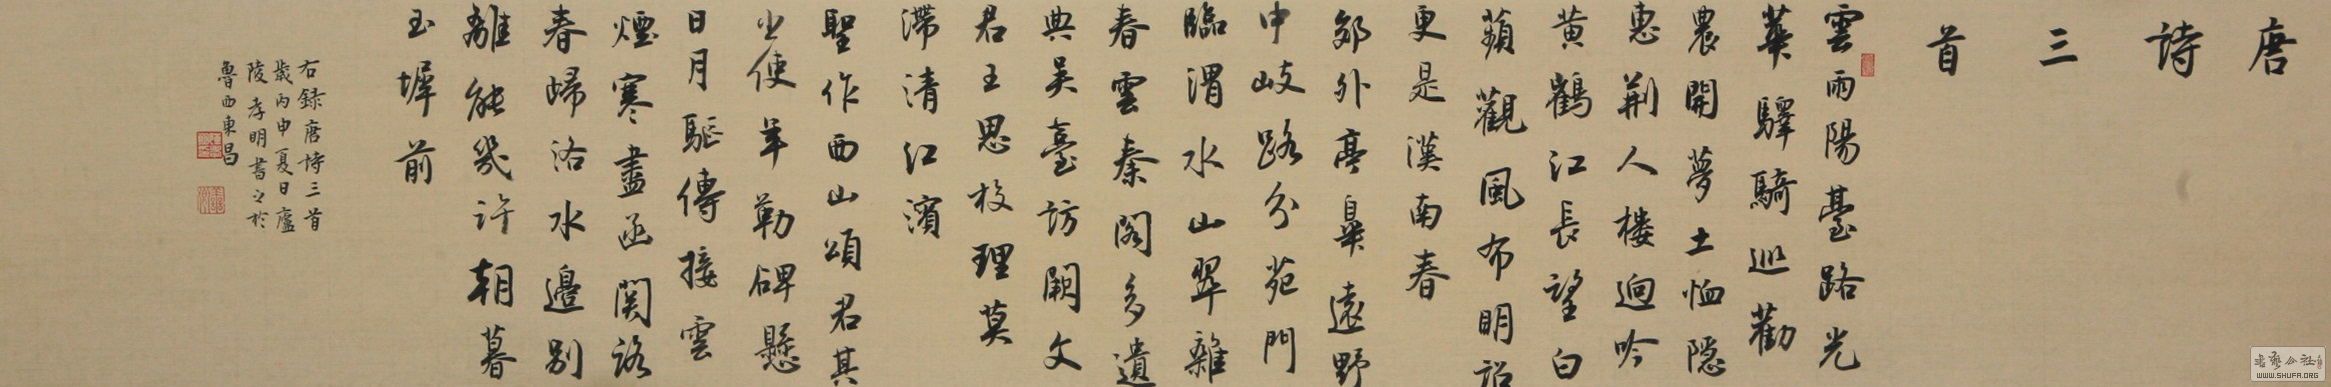 唐詩三首
雲雨陽臺路光
華驛騎巡勸
農開夢土恤隱
惠荆人樓迥吟
黄鶴江長望白
蘋觀風布明詔
更是漢南春
郊外亭皐遠野
中岐路分苑門
臨渭水山翠雜
春雲秦閣多遺
典吴臺訪闕文
君王思校理莫
滯清江濱
聖作西山頌君其
出使年勒碑懸
日月驅傳接雲
煙寒盡函関路
春歸洛水邊別
離能幾許朝暮
玉墀前
右録唐詩三首
歲丙申夏日廬
陵孝明書之於
魯西東昌
WWW.SHUFA.ORG